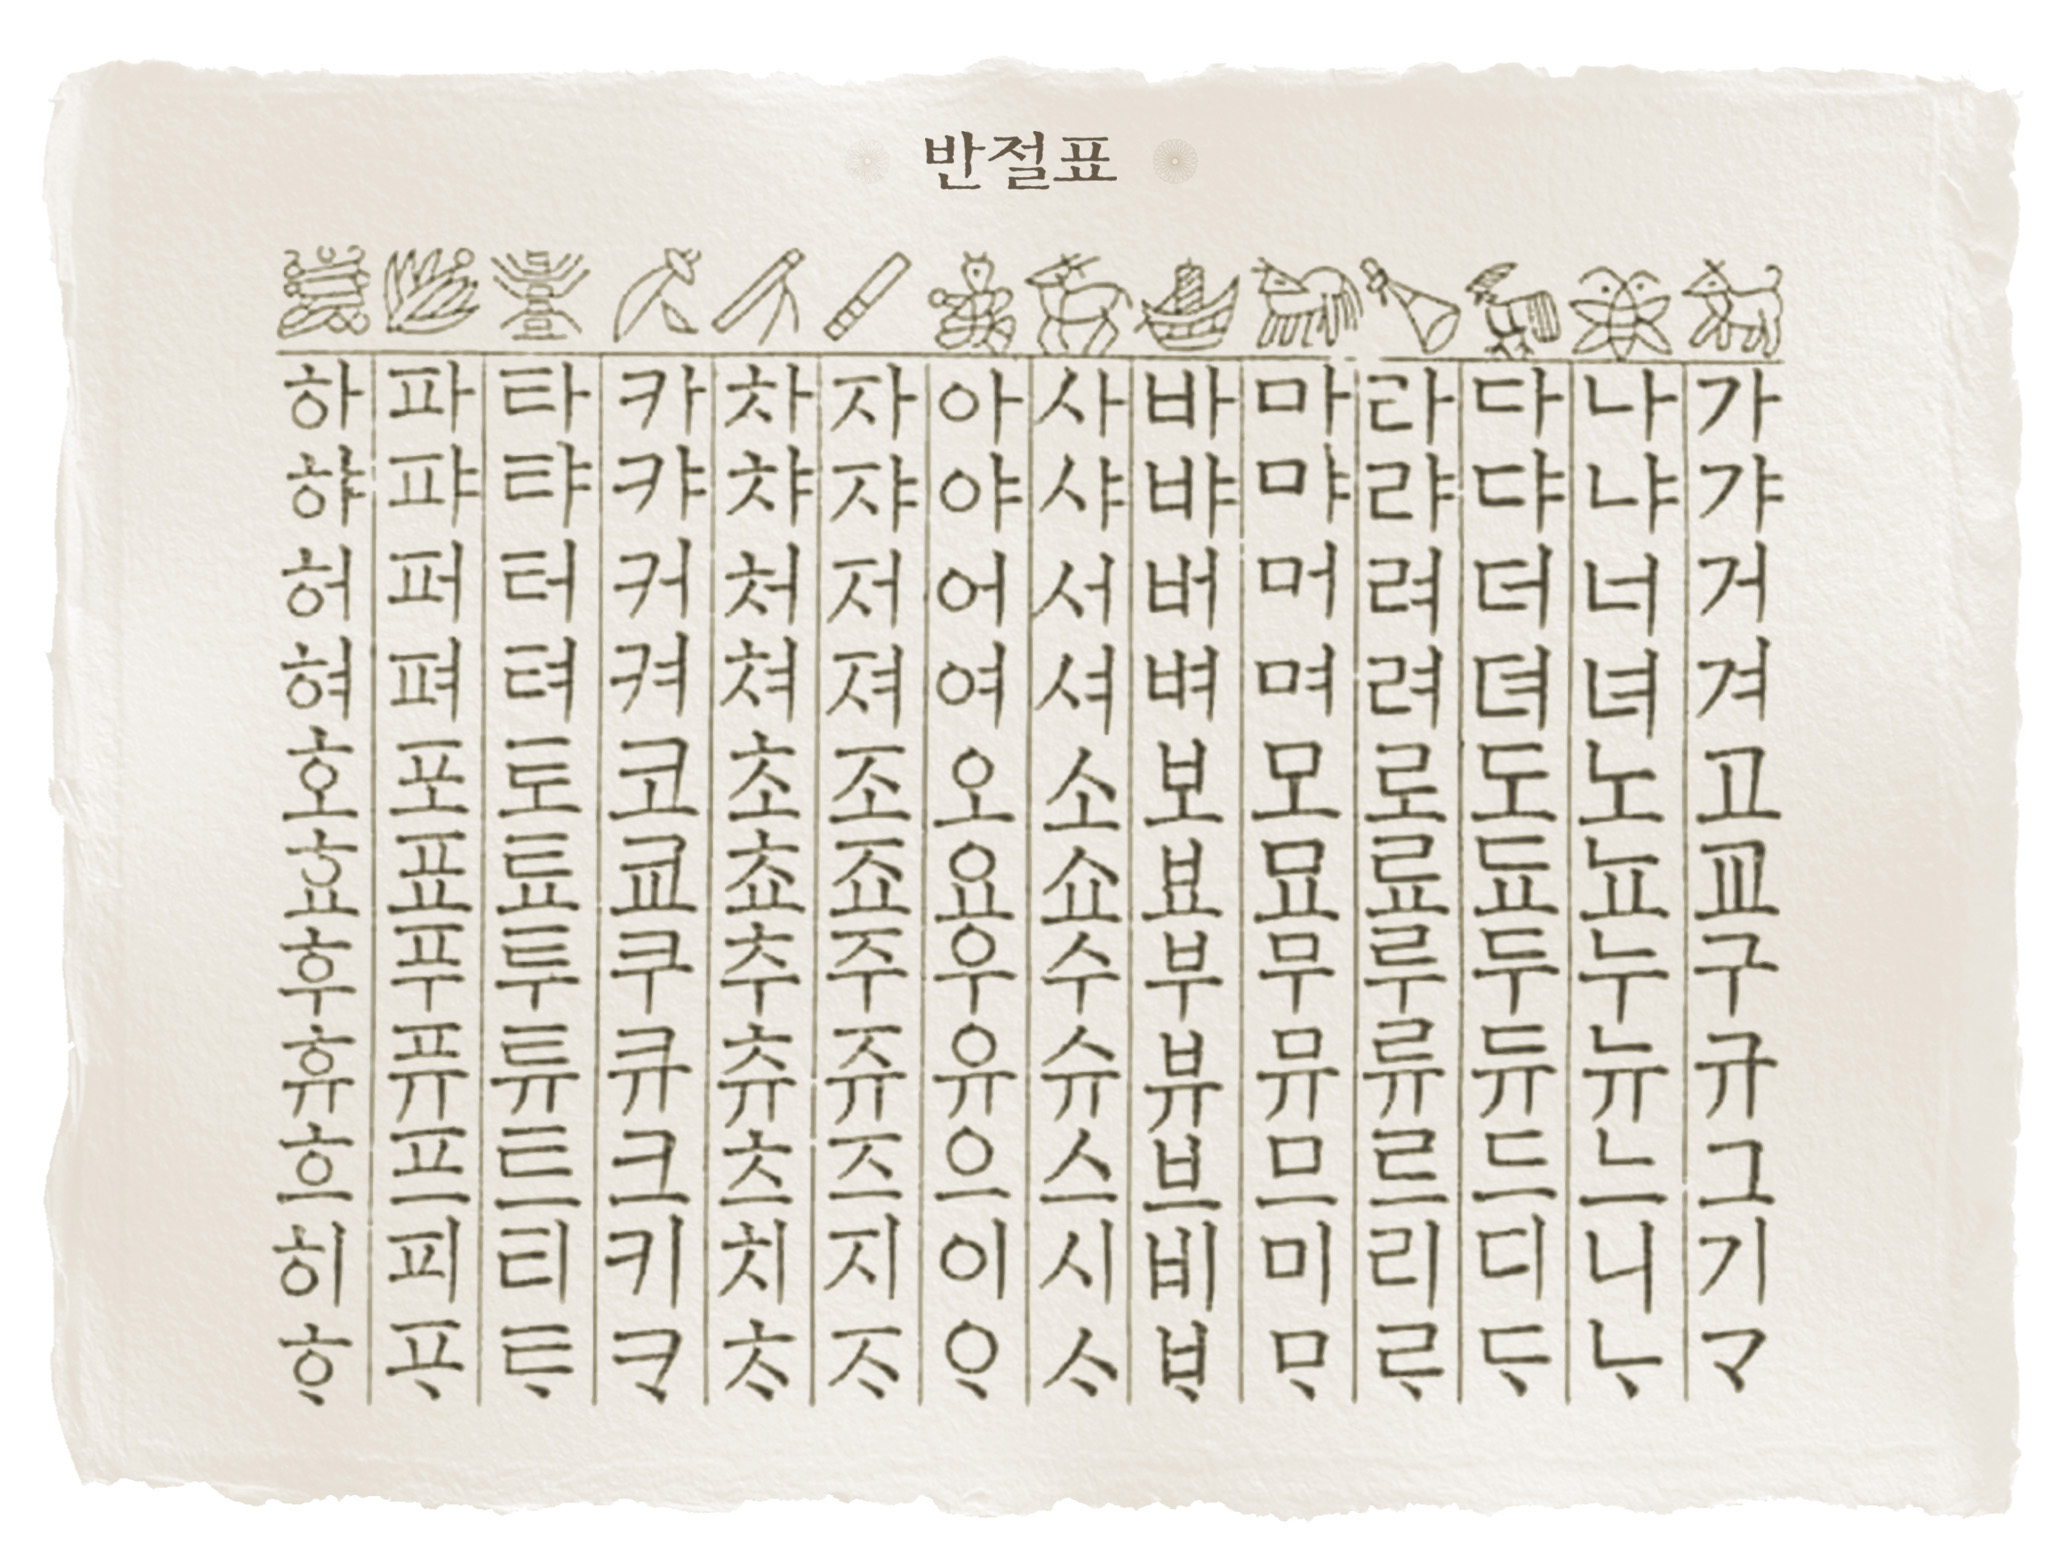 반절표
가 갸 거 겨 고 교 구 규 그 기 ᄀᆞ
나 냐 너 녀 노 뇨 누 뉴 느 니 ᄂᆞ
다 댜 더 뎌 도 됴 두 듀 드 디 ᄃᆞ
라 랴 려 려 로 료 루 류 르 리 ᄅᆞ
마 먀 머 며 모 묘 무 뮤 므 미 ᄆᆞ
바 뱌 버 벼 보 뵤 부 뷰 브 비 ᄇᆞ
사 샤 서 셔 소 쇼 수 슈 스 시 ᄉᆞ
아 야 어 여 오 요 우 유 으 이 ᄋᆞ
자 쟈 저 져 조 죠 주 쥬 즈 지 ᄌᆞ
차 챠 처 쳐 초 쵸 추 츄 츠 치 ᄎᆞ
카 캬 커 켜 코 쿄 쿠 큐 크 키 ᄏᆞ
타 탸 터 텨 토 툐 투 튜 트 티 ᄐᆞ
파 퍄 퍼 펴 포 표 푸 퓨 프 피 ᄑᆞ
하 햐 허 혀 호 효 후 휴 흐 히 ᄒᆞ